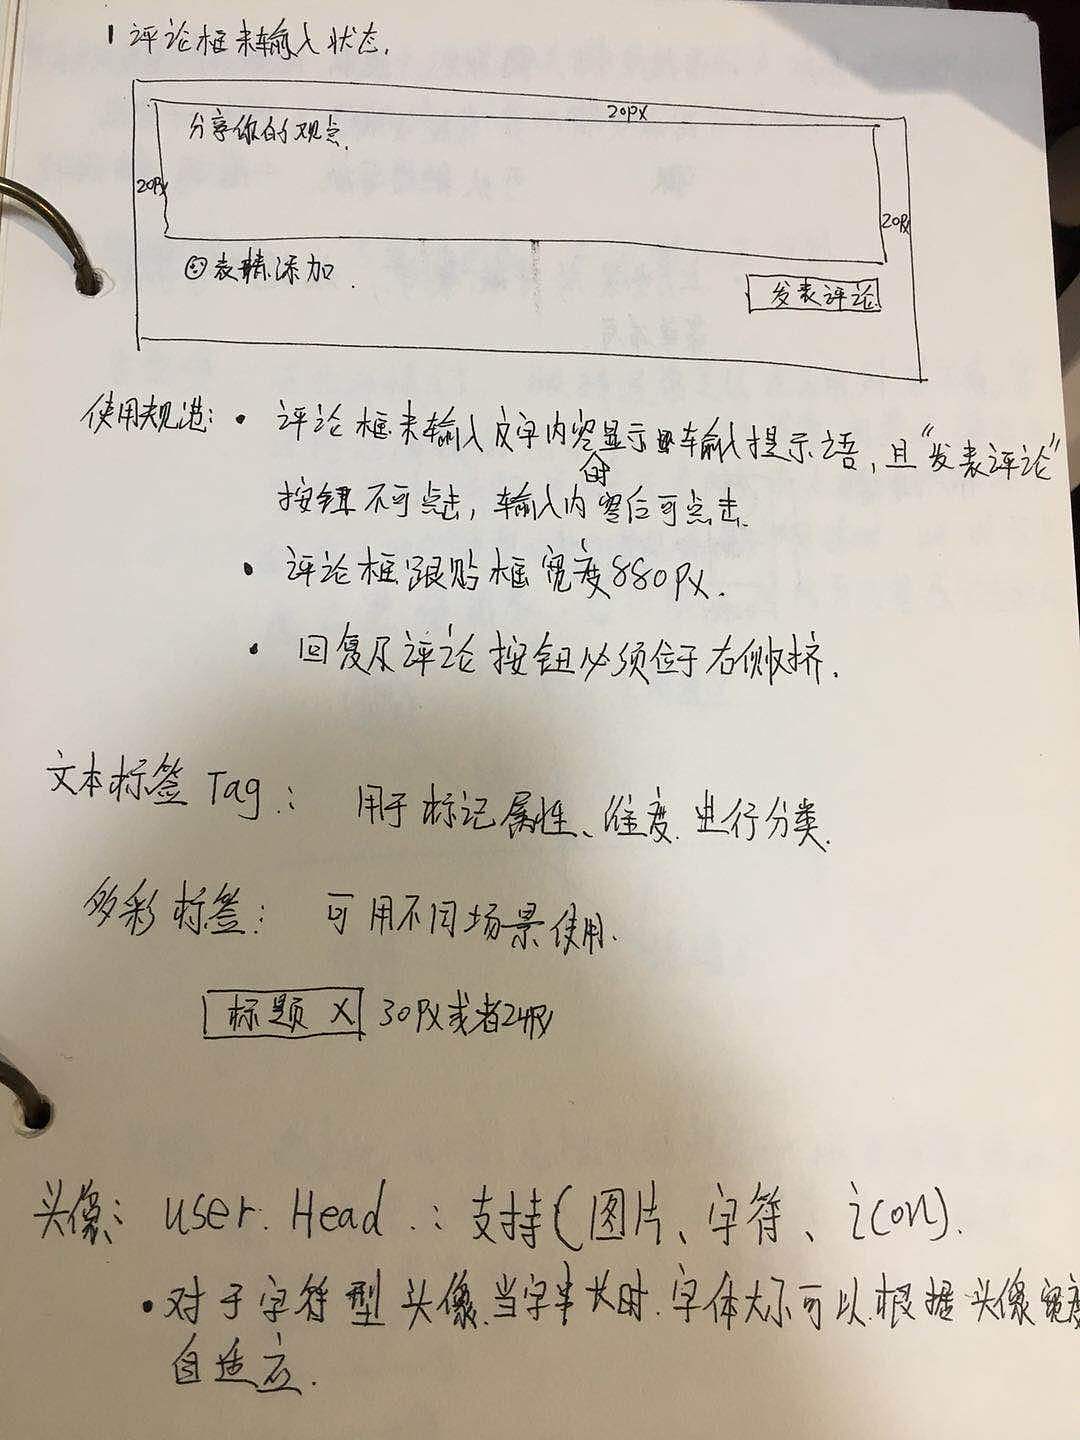 1 评论框未输入状态.
20px
分享你的观点.
20Px
20Px
表情添加.
发表评论
使用规范: • 评论框未输入文字内容时显示输入提示语, 且“发表评论”
按钮不可点击, 输入内容后可点击.
• 评论框跟贴框宽度880PX.
• 回复及评论按钮必须位于右侧
文本标签 Tag: 用于标记属性、维度.进行分类.
多彩标签: 可用不同场景使用.
标题 X 30Px或者24Px
头像: user.Head.: 支持(图片、字符、icon).
• 对于字符型头像.当字串长时.字体大小可以根据头像宽度
自适应.